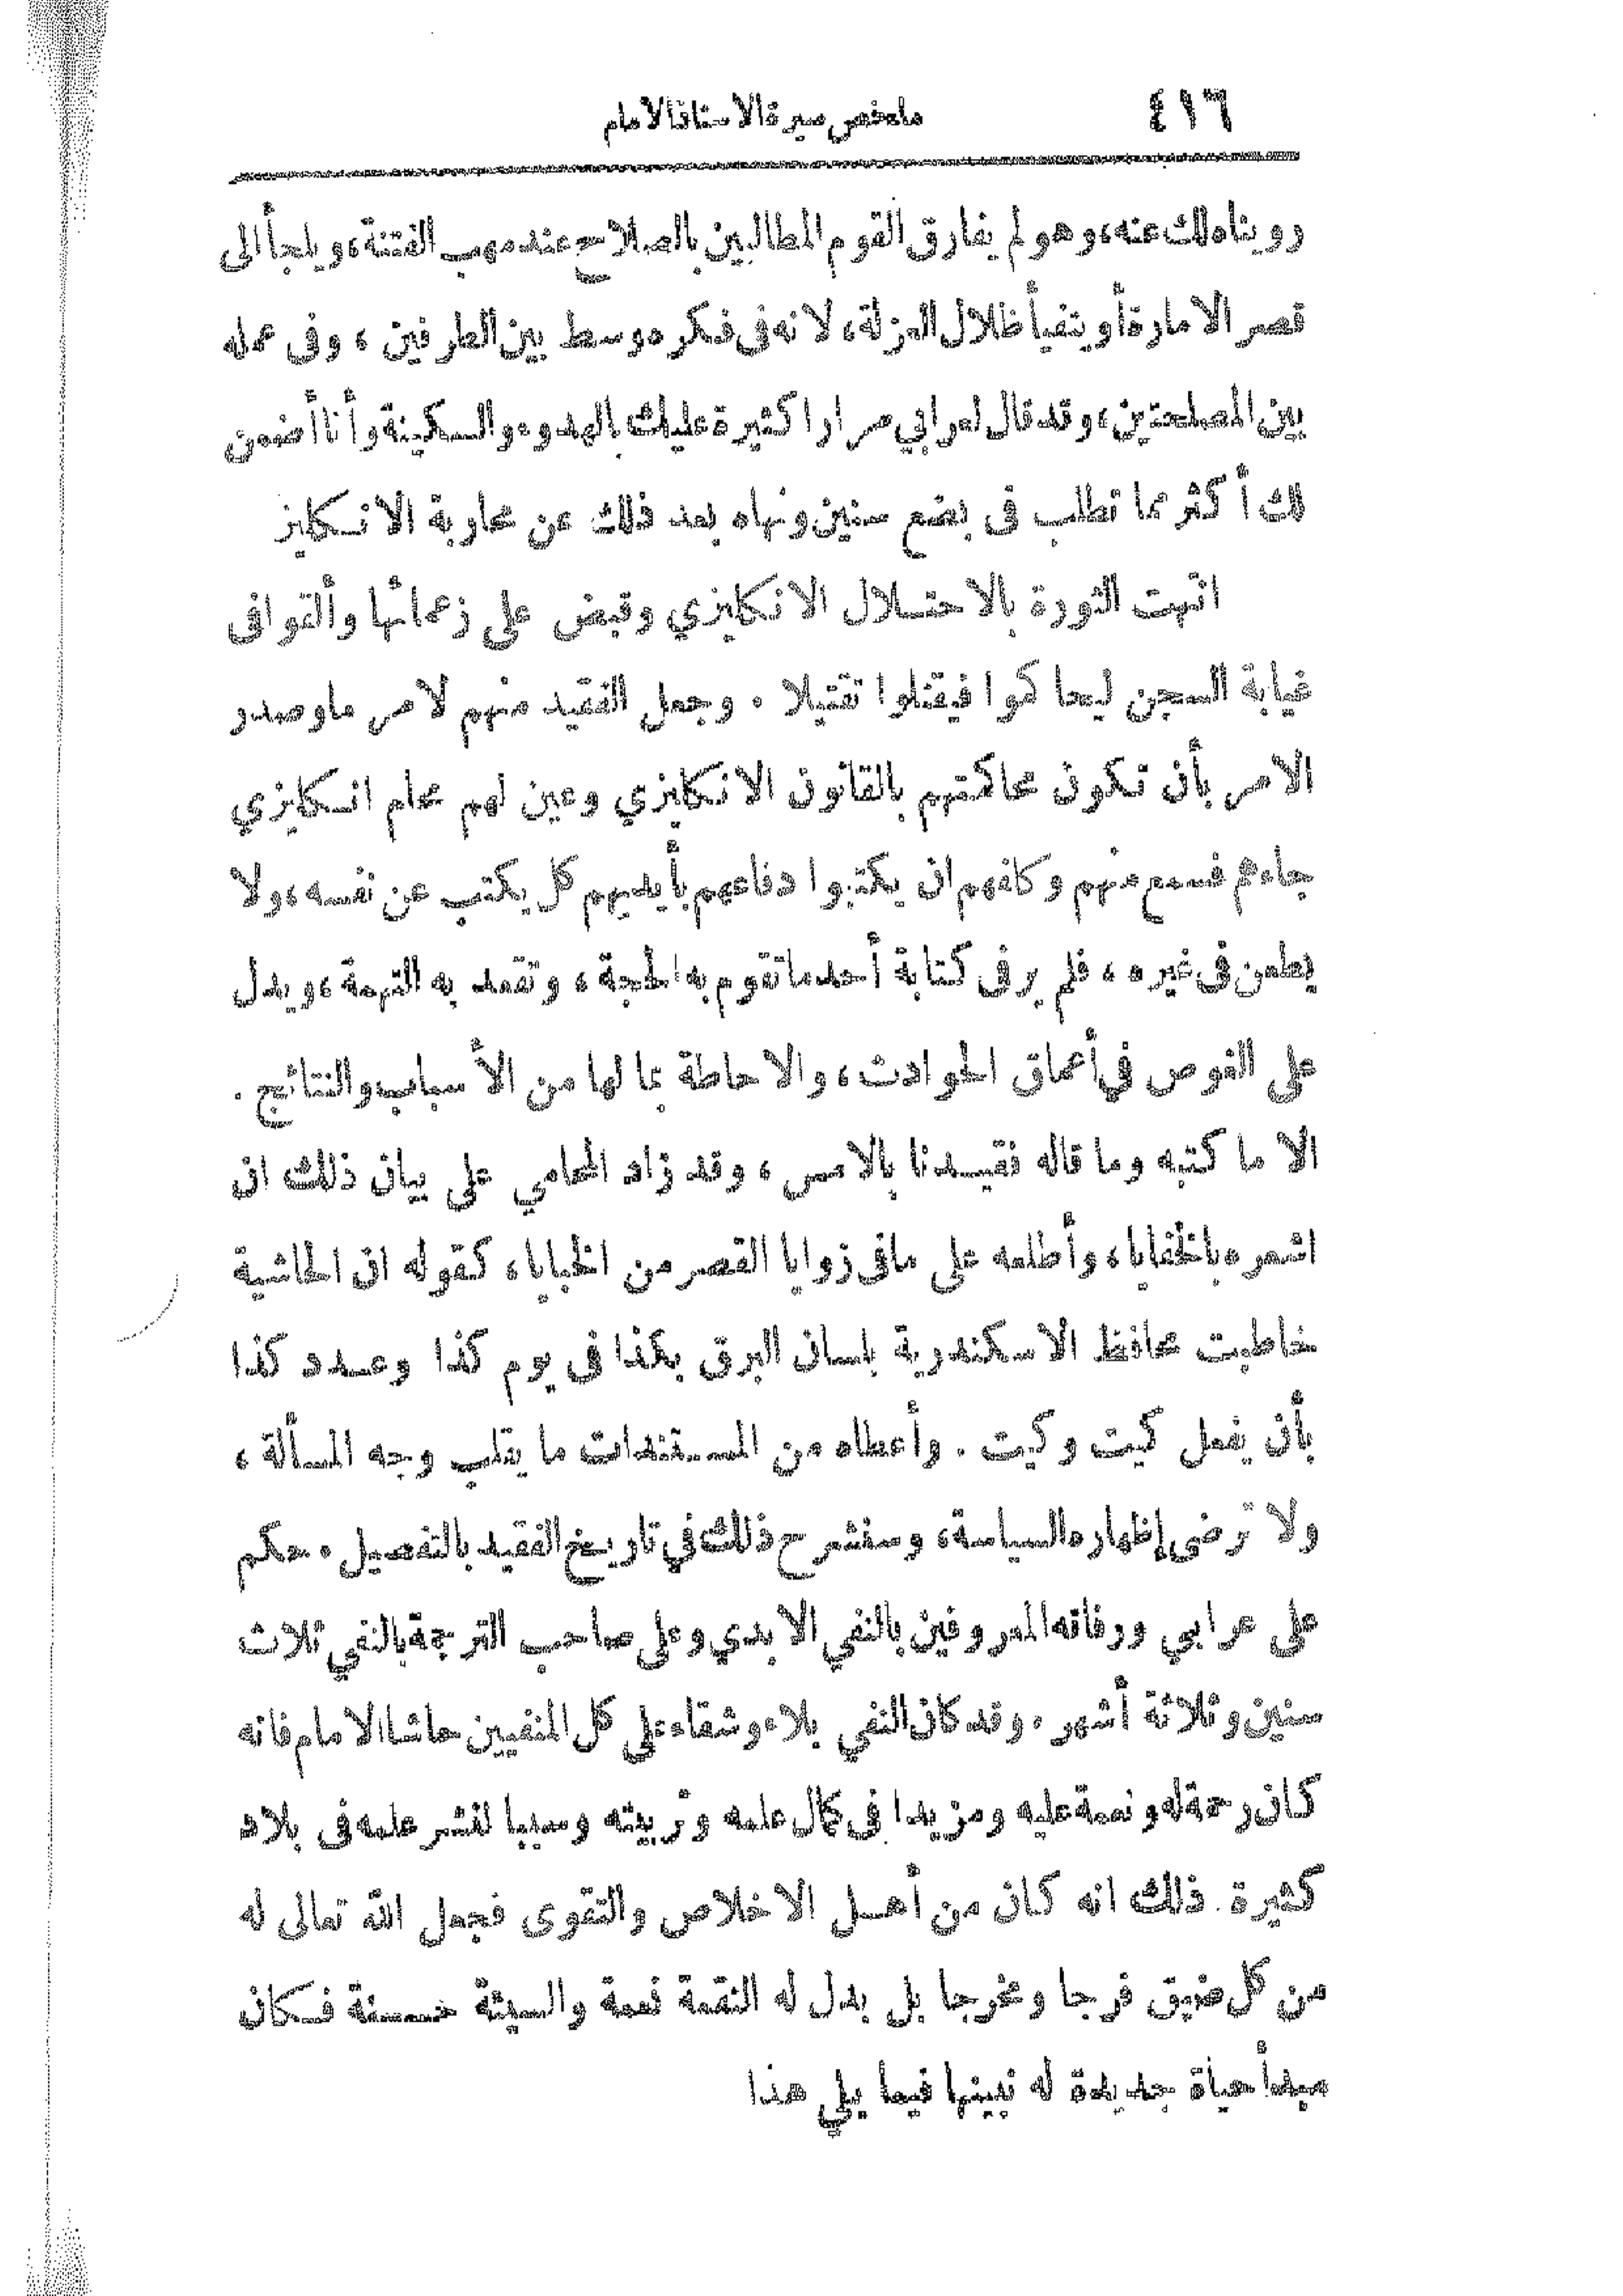 ٤١٦ ملخص سيرة الاستاذ الامام
روينا ذلك عنه، وهو لم يفارق القوم المطالبين بالصلاح عند مهب الفتنة، ويلجأ الى
قصر الامارة أو يتفيأ ظلال العزلة، لانه في فكره وسط بين الطرفين ، وفي عمله
بين المصلحتين، وقد قال لعرابي مرارا كثيرة عليك بالهدوء والسكينة وأنا أضمن
لك أكثر مما تطلب في بضع سنين ونهاه بعد ذلك عن محاربة الانكليز
انتهت الثورة بالاحتلال الانكليزي وقبض على زعمائها وألقوا في
غيابة السجن ليحاكموا فيقتلوا تقتيلا . وجعل الفقيد منهم لامر ما وصدر
الامر بأن تكون محاكمتهم بالقانون الانكليزي وعين لهم محام انكليزي
جاءهم فسمع منهم وكلفهم ان يكتبوا دفاعهم بأيديهم كل يكتب عن نفسه، ولا
يطعن في غيره ، فلم ير في كتابة أحد ما تقوم به الحجة ، وتقعد به التهمة ، ويدل
على الغوص في أعماق الحوادث ، والاحاطة بما لها من الأسباب والنتائج .
الا ما كتبه وما قاله فقيدنا بالامس ، وقد زاد المحامي على بيان ذلك ان
اشعره بالخفايا، وأطلعه على ما في زوايا القصر من الخبايا، كقوله ان الحاشية
خاطبت محافظ الاسكندرية بلسان البرق بكذا في يوم كذا وعدد كذا
بأن يفعل كيت وكيت . وأعطاه من المستندات ما يقلب وجه المسألة ،
ولا ترضى إظهاره السياسة، وسنشرح ذلك في تاريخ الفقيد بالتفصيل . حكم
على عرابي ورفاقه المعروفين بالنفي الابدي وعلى صاحب الترجمة بالنفي ثلاث
سنين وثلاثة أشهر . وقد كان النفي بلاء وشقاء على كل المنفيين حاشا الامام فانه
كان رحمة له ونعمة عليه ومزيدا في كمال علمه وتربيته وسببا لنشر علمه في بلاد
كثيرة . ذلك انه كان من أهل الاخلاص والتقوى فجعل الله تعالى له
من كل ضيق فرجا ومخرجا بل بدل له النقمة نعمة والسيئة حسنة فكان
مبدأ حياة جديدة له نبينها فيما يلي هذا